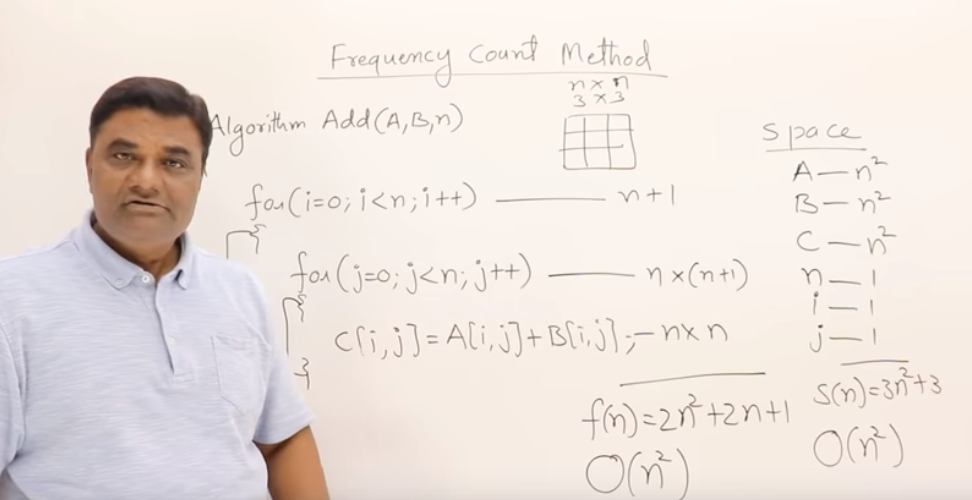 Frequency Count Method
n × n
3 × 3
Algorithm Add(A,B,n)
for(i=0; i<n; i++) ——— n+1
{
for(j=0; j<n; j++) ——— n×(n+1)
{
C[i,j]=A[i,j]+B[i,j]; — n×n
}
f(n)=2n²+2n+1
O(n²)
Space
A — n²
B — n²
C — n²
n — 1
i — 1
j — 1
S(n)=3n²+3
O(n²)